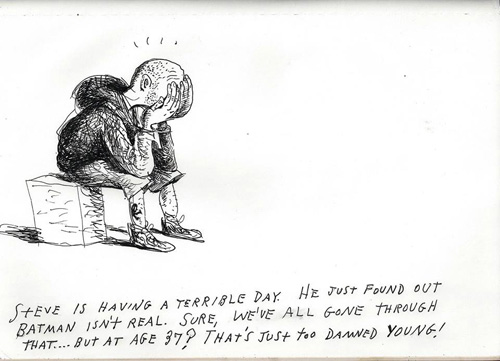 STEVE IS HAVING A TERRIBLE DAY. HE JUST FOUND OUT
BATMAN ISN'T REAL. SURE, WE'VE ALL GONE THROUGH
THAT.... BUT AT AGE 37? THAT'S JUST TOO DAMNED YOUNG!